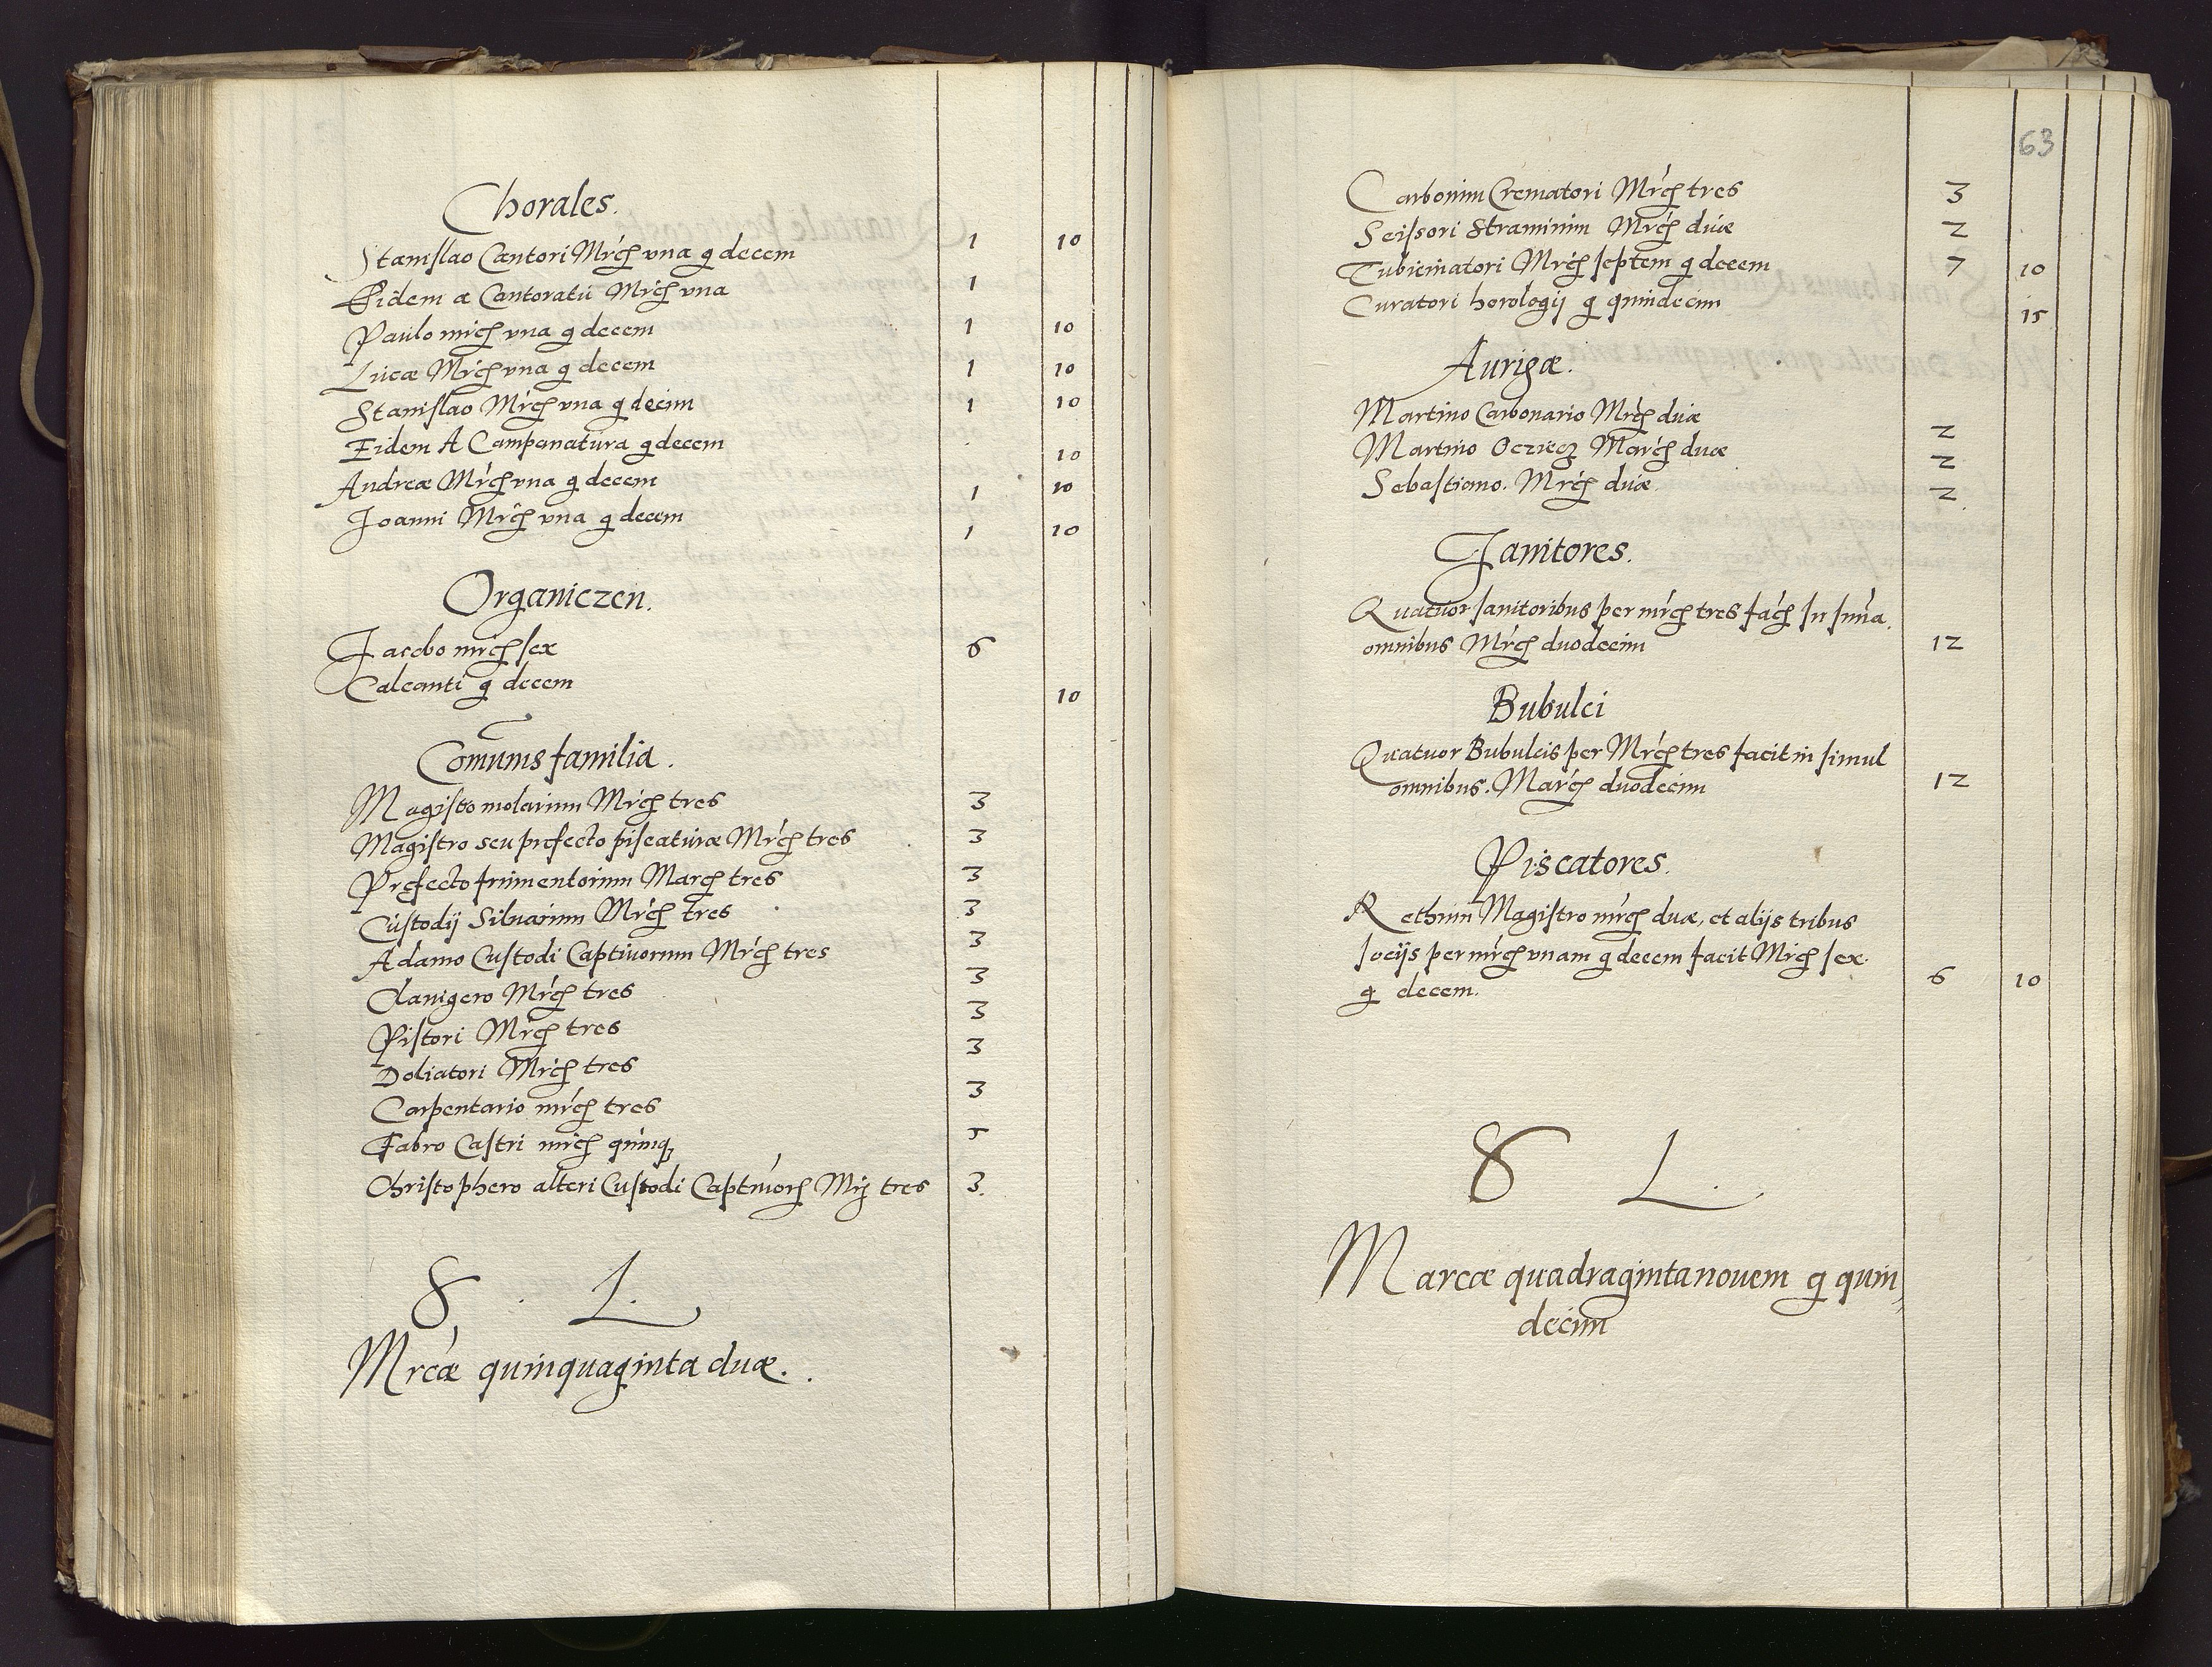 Chorales.
Stanislao Cantori Mrcȩ vna g decem 1 10
Eidem a Cantoratu Mrcȩ vna 1
Paulo mrcȩ vna g decem 1 10
Lucæ Mrcȩ vna g decem 1 10
Stanislao Mrcȩ vna g decim 1 10
Eidem A Campanatura g decem 10
Andreæ Mrcȩ vna g decem 1 10
Joanni Mrcȩ vna g decem 1 10
Organiczen.
Jacobo mrcȩ sex 6
Calcanti g decem 10
Comunis familia.
Magisto molarium Mrcȩ tres 3
Magistro seu prefecto piscaturæ Mrcȩ tres 3
Prefecto frumentorum Marcȩ tres 3
Custodij Siluarum Mrcȩ tres 3
Adamo Custodi Captiuorum Mrcȩ tres 3
Clauigero Mrcȩ tres 3
Pistori Mrcȩ tres 3
Doliatori Mrcȩ tres 3
Carpentario mrcȩ tres 3
Fabro Castri mrcȩ quinq 5
Christophero alteri Custodi Captiuorȩ Mrȩ tres 3.
8 L.
Mrcæ quinquaginta duæ..
63
Carbonum Crematori Mrcȩ tres 3
Scissori Straminum Mrcȩ duæ 2
Tubicinatori Mrcȩ septem g decem 7 10
Curatori horologij g quindecim 15
Aurigæ.
Martino Carbonario Mrcȩ duæ 2
Martino Ocziecz Marcȩ duæ 2
Sebastiano. Mrcȩ duæ. 2.
Janitores.
Quatuor Janitoribus per mrcȩ tres facȩ In sma.
omnibus Mrcȩ duodecim 12
Bubulci
Quatuor Bubulcis per Mrcȩ tres facit in simul
omnibus. Marcȩ duodecim 12
Piscatores.
Rethium Magistro mrcȩ duæ, et alijs tribus
socijs per mrcȩ vnam g decem facit Mrcȩ sex.
g decem. 6 10
8 L.
Marcæ quadraginta nouem g quin,
decim